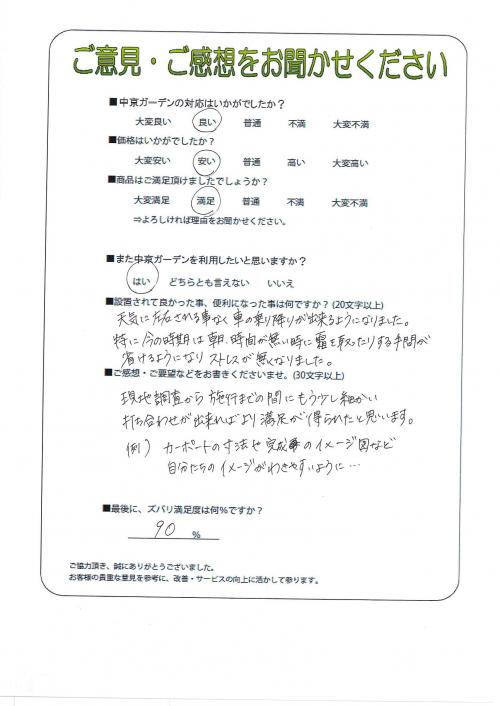 ご意見・ご感想をお聞かせください
■中京ガーデンの対応はいかがでしたか？
大変良い 良い 普通 不満 大変不満
■価格はいかがでしたか？
大変安い 安い 普通 高い 大変高い
■商品はご満足頂けましたでしょうか？
大変満足 満足 普通 不満 大変不満
⇒よろしければ理由をお聞かせください。
■また中京ガーデンを利用したいと思いますか？
はい どちらとも言えない いいえ
■設置されて良かった事、便利になった事は何ですか？(20文字以上)
天気に左右される事なく車の乗り降りが出来るようになりました。
特に今の時期は朝、時間が無い時に霜を取ったりする手間が
省けるようになりストレスが無くなりました。
■ご感想・ご要望などをお書きくださいませ。(30文字以上)
現地調査から施行までの間にもう少し細かい
打ち合わせが出来ればより満足が得られたと思います。
例） カーポートの寸法や完成のイメージ図など
自分たちのイメージがわきやすいように…
■最後に、ズバリ満足度は何％ですか？
90 ％
ご協力頂き、誠にありがとうございました。
お客様の貴重な意見を参考に、改善・サービスの向上に活かして参ります。